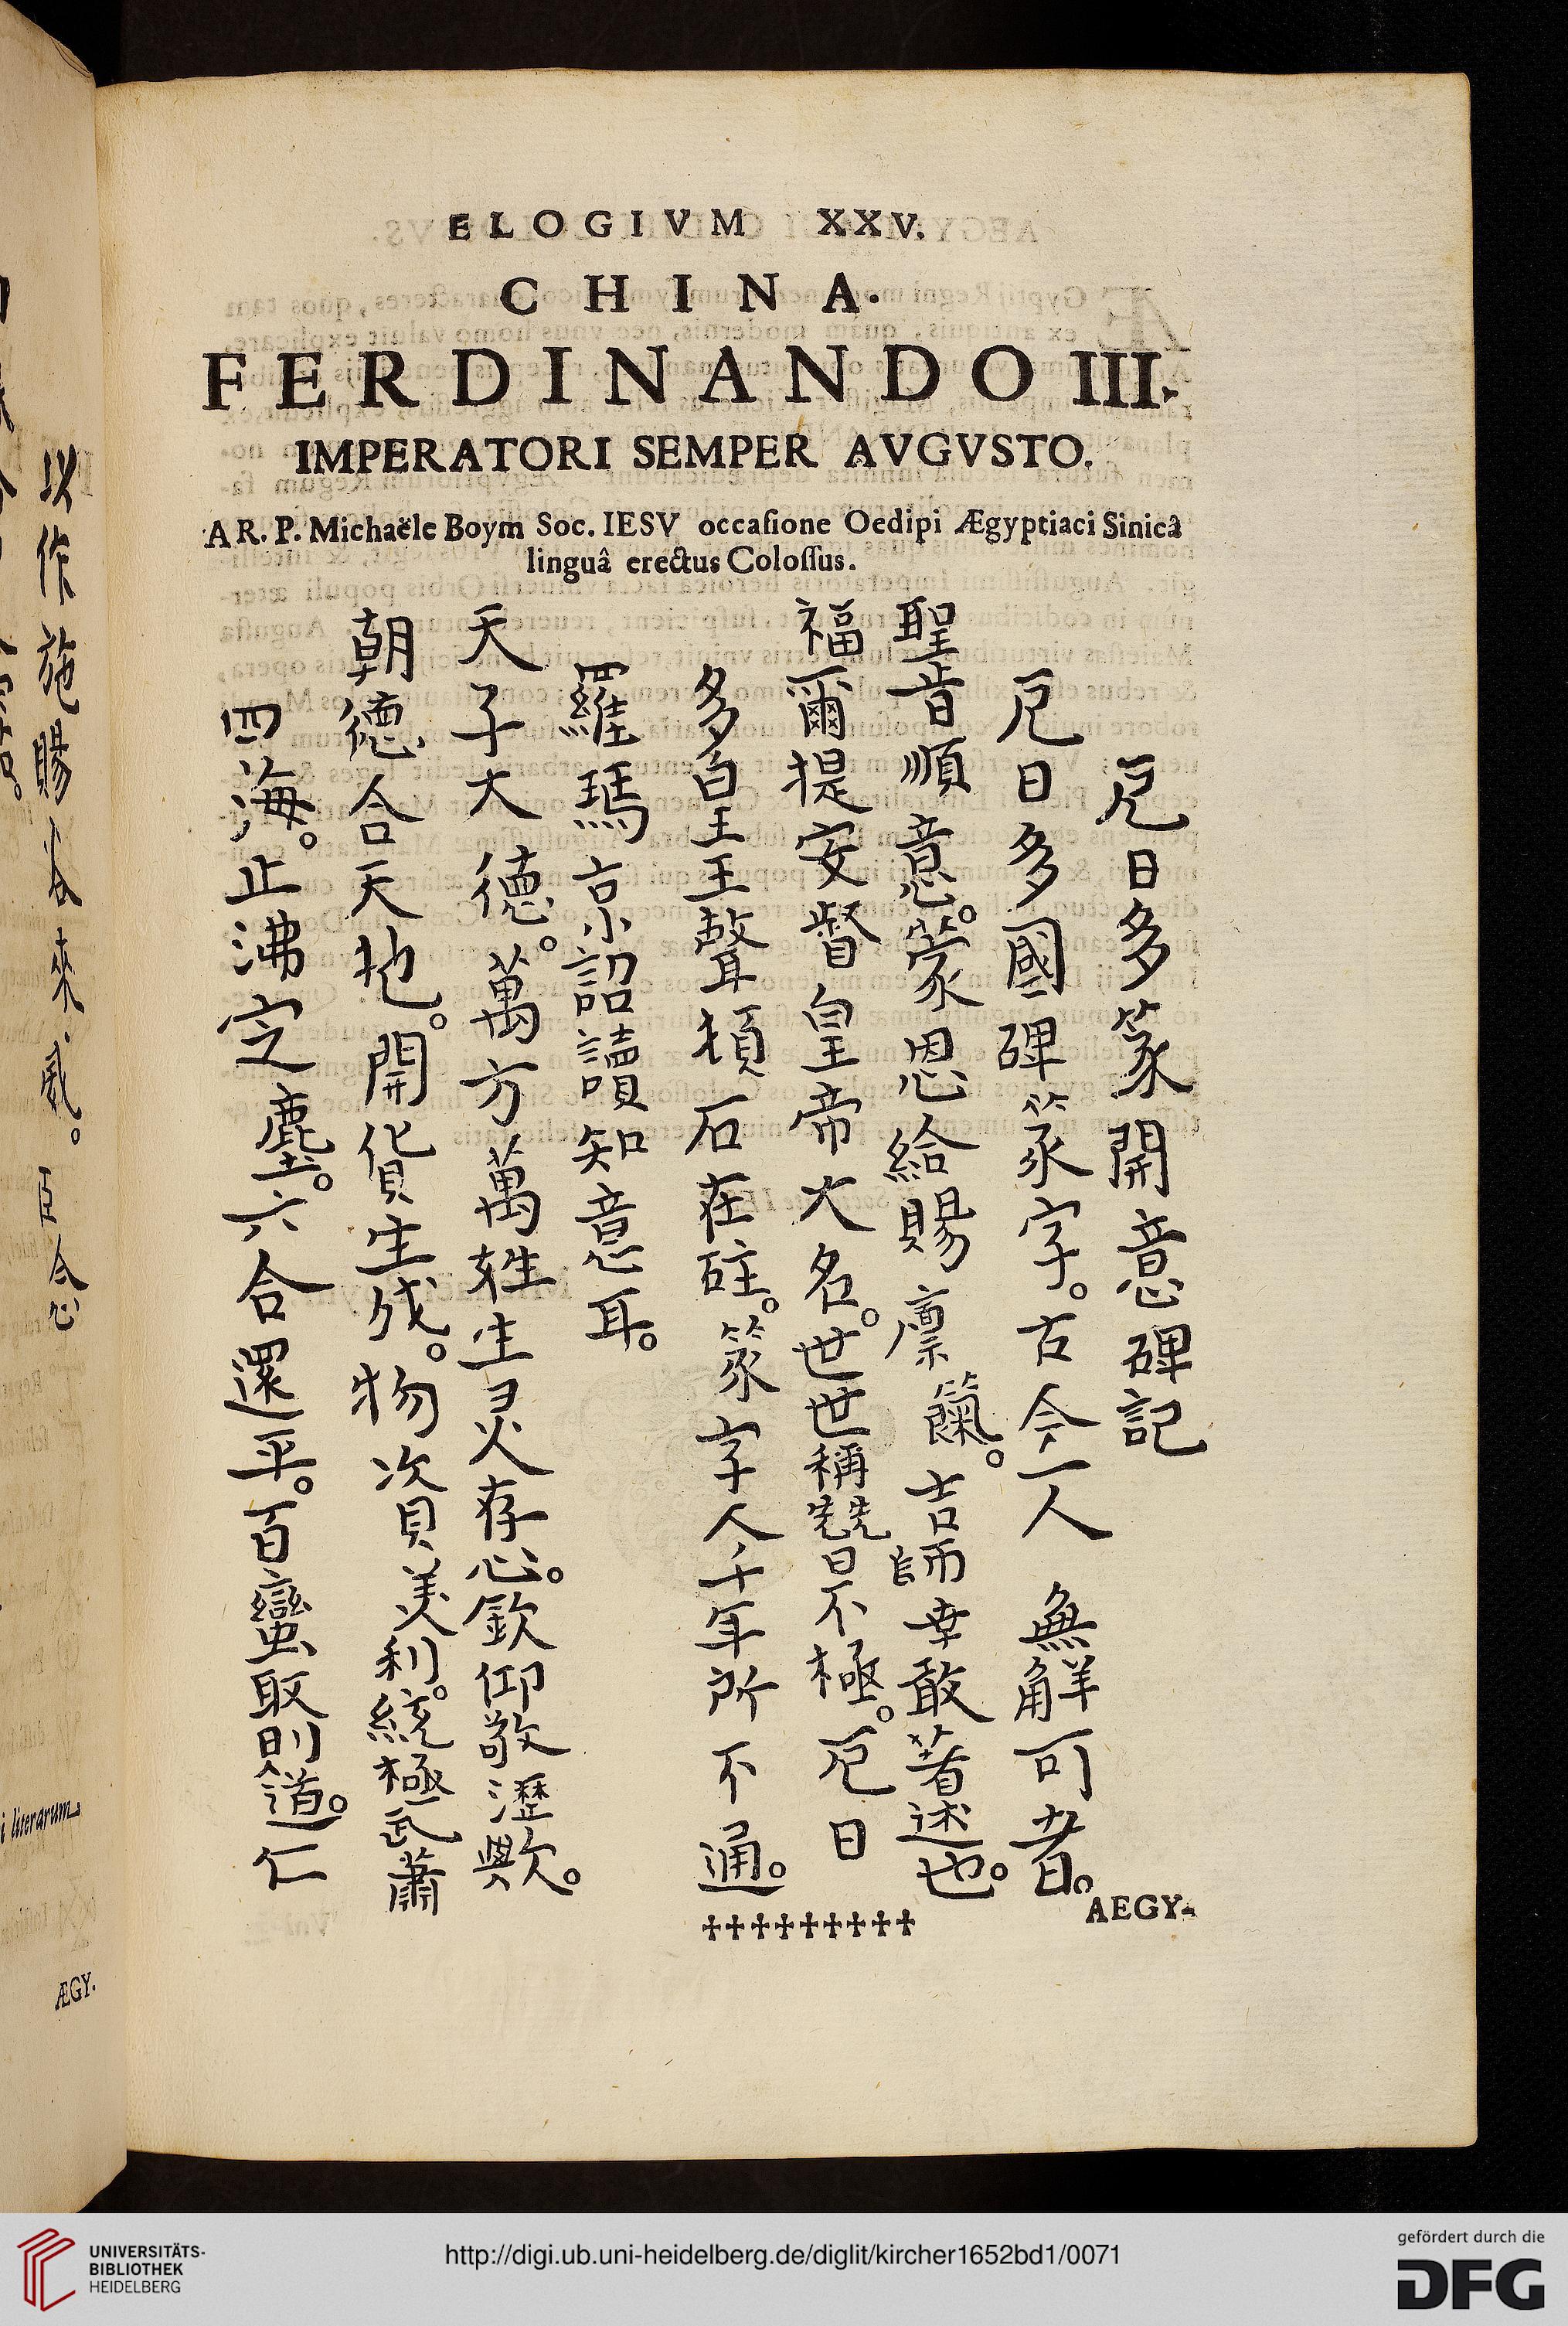 ELOGIVM XXV.
CHINA.
FERDINANDO III.
IMPERATORI SEMPER AVGVSTO.
A R. P. Michaële Boym Soc. IESV occasione Oedipi Ægyptiaci Sinicâ
linguâ erectus Colossus.
厄日多篆開意碑記
厄日多國碑篆字。古今一人無觧可者。
聖旨順意。蒙恩給賜廪。吉師幸敢著述也。
福爾提安督皇帝大名。世世稱兢日不極。厄日
多皇王聲頌石在砫。篆字人千年所不通。
羅瑪京詔讀知意耳。
天子大德。萬方萬姓生灵存心。欽仰敬瀝歟。
朝德合天地。開貨生成。物次貝美利。統極武蕭
四海。止沸定塵。六合還平。百蠻取則道。仁
✝✝✝✝✝✝✝✝✝
AEGY-
以作施賜
來
臣今
i literarum
ÆGY.
UNIVERSITÄTS-
BIBLIOTHEK
HEIDELBERG
http://digi.ub.uni-heidelberg.de/diglit/kircher1652bd1/0071
gefördert durch die
DFG